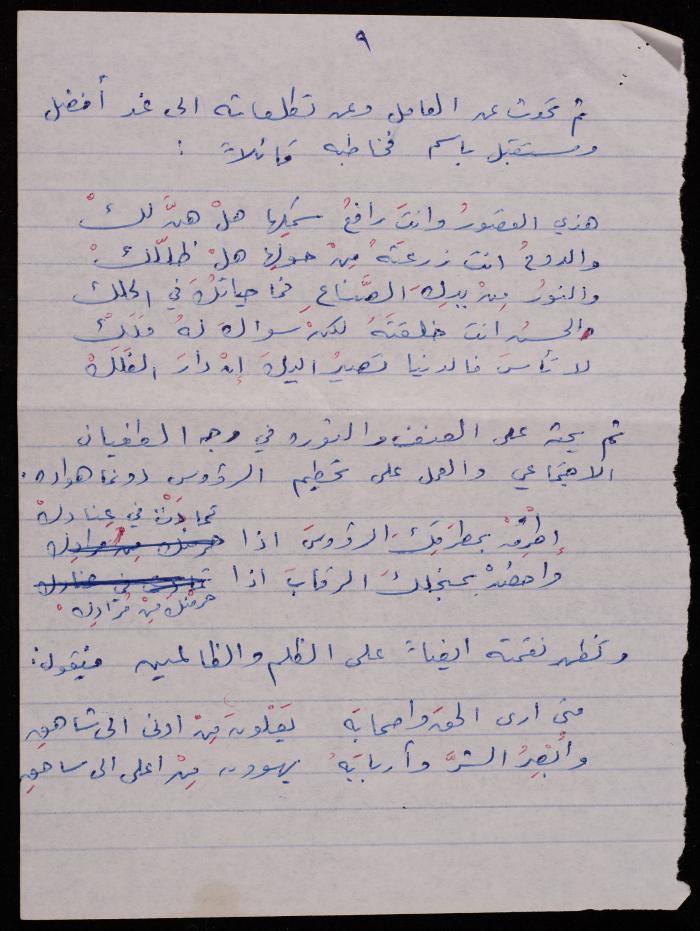 ٩
ثم تحدث عن العامل وعن تطلعاته الى غد أفضل
ومستقبل باسم فخاطبه قائلاً :
هذي القصورُ وانتَ رافعُ سَمكِها هلْ هنَّ لكْ
والدوحُ انت زرعتَهُ مِنْ حولِها هلْ ظلّلكْ
والنورُ مِنْ يدِكَ الصَّناعِ فما حياتُكَ في الحلك
والحسنُ انت خلقتَهُ لكنْ سواكَ لهُ مَلَكْ
لا تيأسَ فالدنيا تصيرُ اليكَ إنْ دارَ الفَلَكْ
ثم يحثه على العنف والثوره في وجه الطغيان
الاجتماعي والعمل على تحطيم الرؤوس دونما هواده .
تمادَتْ في عِنادِكْ
إطْرِقْ بمطرَقِكَ الرؤوسَ اذا حرمنك من مرادك
واحصُدْ بمنجلكَ الرقابَ اذا تمادت في عنادك
حرمْنكَ مِنْ مُرَادِكْ .
وتظهر نقمته ايضاً على الظلم والظالمين فيقول :
متى ارى الحقَ واصحابَه يَعْلونَ مِنْ ادنى الى شاهقِ
وأُبْصِرُ الشرَّ وأربابَهُ يهوون مِنْ اعلى الى ساحقِ